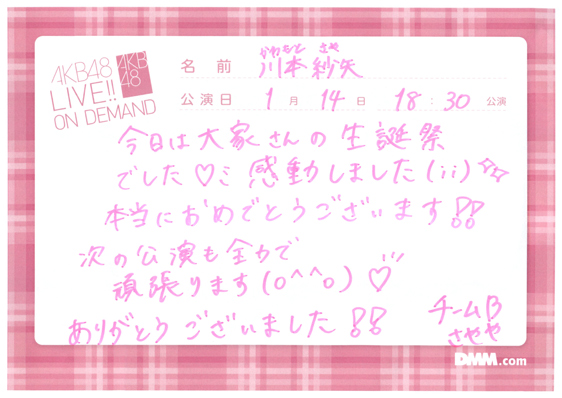 AKB48
LIVE!!
ON DEMAND
AKB
48
かわもと さや
名前 川本紗矢
公演日 1月14日 18:30 公演
今日は大家さんの生誕祭
でした♡ミ 感動しました(ii)☆☆
本当におめでとうございます!!
次の公演も全力で
頑張ります(o^^o)♡
ありがとうございました!!
チームB
さやや
DMM.com